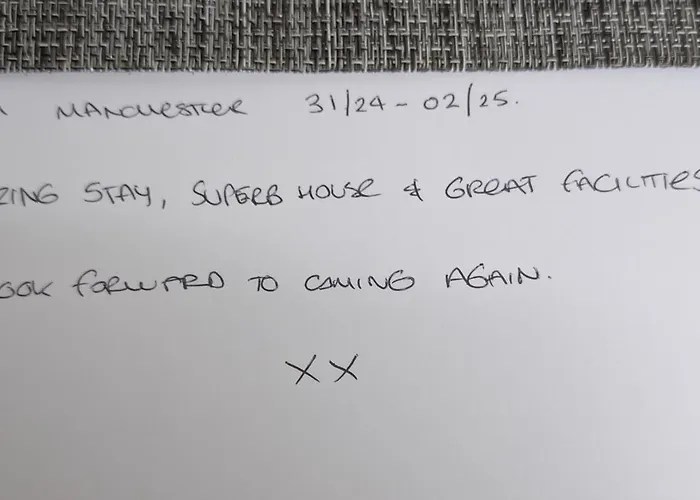 MANCHESTER 31/24 - 02/25.
ZING STAY, SUPERB HOUSE & GREAT FACILITIES
OOK FORWARD TO COMING AGAIN.
XX